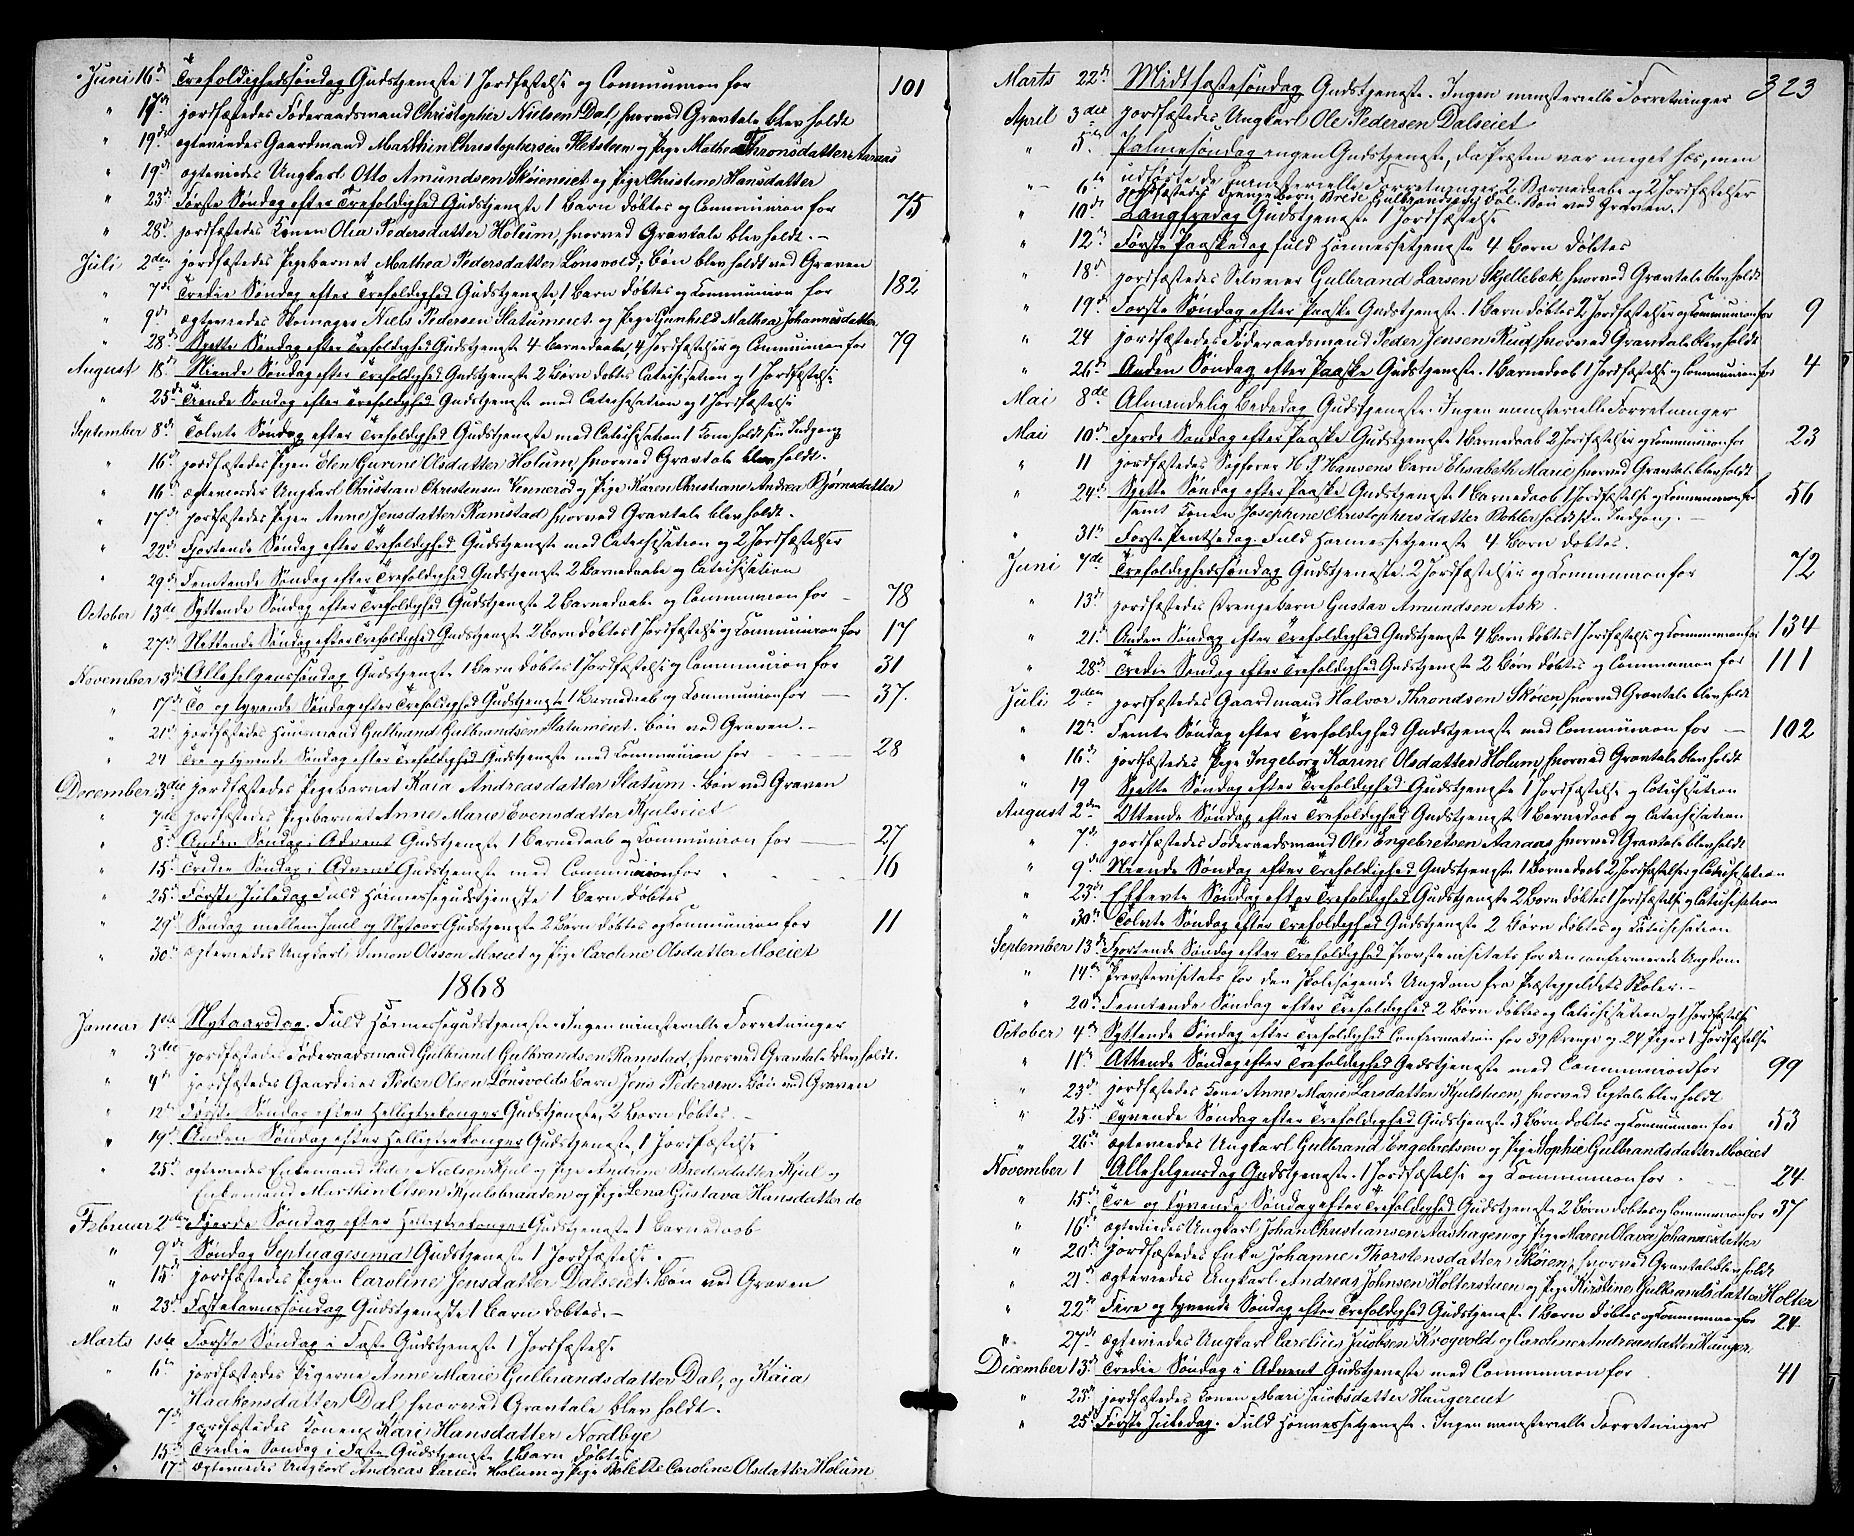 Juni 16de Trefoldighedssøndag Gudstjeneste 1 Jordfæstelse og Communion for 101
" 17de jordfæstedes Føderaadsmand Christopher Nielsen Dal, hvorved Gravtale blev holdt
" 19de ægteviedes Gaardmand Marthin Christophersen Fletsteen og Pige Mathea Thronsdatter Aaraas
" 19de ægteviedes Ungkarl Otto Amundsen Skøieneiet og Pige Christine Hansdatter
" 23de Første Søndag efter Trefoldighed Gudstjeneste 1 Barn døbtes og Communion for 75
" 28de jordfæstedes Konen Olia Pedersdatter Holum, hvorved Gravtale blev holdt. –
Juli 2den jordfæstedes Pigebarnet Mathea Pedersdatter Lønsvold; Bøn blev holdt ved Graven
" 7de Tredie Søndag efter Trefoldighed Gudstjeneste, 1 Barn døbtes og Communion for 182
" 9de ægteviedes Skomager Niels Pedersen Slatumeiet og Pige Gunhild Mathea Johannesdatter
" 28de Sjette Søndag efter Trefoldighed Gudstjeneste 4 Barnedaabe, 4 Jordfæstelser og Communion for 79
August 18de Niende Søndag efter Trefoldighed Gudstjeneste 2 Børn døbtes Catechisation og 1 Jordfæstelse
" 25de Tiende Søndag efter Trefoldighed Gudstjeneste med Catechisation og 1 Jordfæstelse
September 8de Tolvte Søndag efter Trefoldighed Gudstjeneste med Catechisation 1 Kone holdt sin Indgang
" 16de jordfæstedes Pigen Elen Gurine Olsdatter Holum, hvorved Gravtale blev holdt.
" 16de ægteviedes Ungkarl Christian Christensen Vennerød og Pige Karen Christiane Andrea Bjørnsdatter
" 17de jordfæstedes Pigen Anne Jensdatter Ramstad hvorved Gravtale blev holdt.
" 22de Fjortende Søndag efter Trefoldighed Gudstjeneste med Catechisation og 2 Jordfæstelser
" 29de Femtende Søndag efter Trefoldighed Gudstjeneste 2 Barnedaabe og Catechisation
October 13de Syttende Søndag efter Trefoldighed Gudstjeneste 2 Barnedaabe og Communion for – 78
" 27de Nittende Søndag efter Trefoldighed Gudstjeneste 2 Børn døbtes 1 Jordfæstelse og Communion for 17
November 3de Allehelgenssøndag Gudstjeneste 1 Barn døbtes 1 Jordfæstelse og Communion for 31
" 17de To og tyvende Søndag efter Trefoldighed Gudstjeneste 1 Barnedaab og Communion for — 37.
" 21de jordfæstedes Huusmand Gulbrand Gulbrandsen Slatumeiet. Bøn ved Graven. –
" 24 Tre og tyvende Søndag efter Trefoldighed Gudstjeneste med Communion for — 28
December 3die jordfæstedes Pigebarnet Kaia Andreasdatter Slatum. Bøn ved Graven
" 7de jordfæstedes Pigebarnet Anne Marie Evensdatter Kjulseiet
" 8de Anden Søndag i Advent Gudstjeneste 1 Barnedaab og Communion for — 27
" 15de Tredie Søndag i Advent Gudstjeneste med Communion for 16
" 25de Første Juledag Fuld Høimessegudstjeneste 1 Barn døbtes
" 29de Søndag mellem Juul og Nytaar Gudstjeneste 2 Børn døbtes og Communion for 11
" 30de ægteviedes Ungkarl Simon Olsson Moeiet og Pige Caroline Olsdatter Moeiet
1868
Januar 1ste Nytaarsdag. Fuld Høimessegudstjeneste. Ingen ministerielle Forretninger
" 3die jordfæstedes Føderaadsmand Gulbrand Gulbrandsen Ramstad, hvorved Gravtale blev holdt.
" 4de jordfæstedes Gaardeier Peder Olsen Lønsvolds Barn Jens Pedersen. Bøn ved Graven
" 12te Første Søndag efter Helligtrekonger Gudstjeneste, 2 Børn døbtes. –
" 19de Anden Søndag efter Helligtrekonger Gudstjeneste, 1 Jordfæstelse
" 25de ægteviedes Enkemand Nielsen Kjul og Pige Andrine Bredesdatter Kjul og
Enkemand Marthin Olsen Kjulsbraaden og Pige Lena Gustava Hansdatter do
Februar 2den Fjerde Søndag efter Helligtrekonger Gudstjeneste 1 Barnedaab
" 9de Søndag Septuagesima Gudstjeneste 1 Jordfæstelse.
" 15de jordfæstedes Pigen Caroline Jensdatter Dalseiet. Bøn ved Graven
" 23de Fastelavnssøndag Gudstjeneste 1 Barn døbtes. –
Marts 1ste Første Søndag i Faste Gudstjeneste 1 Jordfæstelse
" 6te jordfæstedes Pigerne Anne Marie Gulbrandsdatter Dal, og Kaia
Haakensdatter Dal hvorved Gravtale blev holdt.
" 7de jordfæstedes Konen Kari Hansdatter Nordbye
" 15de Tredie Søndag i Faste Gudstjeneste 1 Barn døbtes
" 17de ægteviedes Ungkarl Andreas Larsen Holum og Pige Bolette Caroline Olsdatter Holum
Marts 22de Midtfastesøndag Gudstjeneste. Ingen ministerielle Forretninger 323
April 3die jordfæstedes Ungkarl Ole Pedersen Dalseiet
" 5te Palmesøndag ingen Gudstjeneste, da Præsten var meget hæs, men
udførte de ministerielle Forretninger 2 Barnedaabe og 2 Jordfæstelser
" 6te jordfæstedes Drenge Barn Brede Gulbrandsen Dal. Bøn ved Graven.
" 10de Langfredag Gudstjeneste 1 Jordfæstelse
" 12te Første Paaskedag fuld Høimessetjeneste 4 Børn døbtes
" 18de jordfæstedes Selveier Gulbrand Larsen Skjellebæk, hvorved Gravtale blev holdt
" 19de Første Søndag efter Paaske Gudstjeneste. 1 Barn døbtes 2 Jordfæstelser og Communion for 9
" 24 jordfæstedes Føderaadsmand Peder Jensen Ruud, hvorved Gravtale blev holdt
" 26de Anden Søndag efter Paaske Gudstjeneste. 1 Barnedaab 1 Jordfæstelse og Communion for 4
Mai 8de Almindelig Bededag Gudstjeneste. Ingen ministerielle Forretninger
Mai 10de Fjerde Søndag efter Paaske Gudstjeneste 1 Barnedaab 2 Jordfæstelser og Communion for 23
" 11 jordfæstedes Sagfører H. P. Hansens Barn Elisabeth Marie hvorved Gravtale blev holdt
" 24de Sjette Søndag efter Paaske Gudstjeneste 1 Barnedaab 1 Jordfæstelse og Communion for 56
samt Konen Josephine Christophersdatter Bohler holdt sin Indgang. –
" 31te Første Pintsedag. Fuld Høimessetjeneste 4 Børn døbtes.
Juni 7de Trefoldighedssøndag Gudstjeneste. 2 Jordfæstelser og Communion for 72
" 13de jordfæstedes Drengebarn Gustav Amundsen Ask.
" 21de Anden Søndag efter Trefoldighed Gudstjeneste 4 Børn døbtes 1 Jordfæstelse og Communion for 134
" 28de Tredie Søndag efter Trefoldighed Gudstjeneste 2 Børn døbtes og Communion for 111
Juli 2den jordfæstedes Gaardmand Halvor Throndsen Skøien, hvorved Gravtale blev holdt
" 12te Femte Søndag efter Trefoldighed Gudstjeneste med Communion for — 102
" 16de jordfæstedes Pige Ingeborg Karine Olsdatter Holum, hvorved Gravtale blev holdt
" 19 Sjette Søndag efter Trefoldighed Gudstjeneste 1 Jordfæstelse og Catechisation
August 2den Ottende Søndag efter Trefoldighed Gudstjeneste 1 Barnedaab og Catechisation
" 7de jordfæstedes Føderaadsmand Ole Engebretsen Aaraas, hvorved Gravtale blev holdt
" 9de Niende Søndag efter Trefoldighed Gudstjeneste 1 Barnedaab 2 Jordfæstelser og Catechisation
" 23de Ellevte Søndag efter Trefoldighed Gudstjeneste 2 Børn døbtes 1 Jordfæstelse og Catechisation
" 30te Tolvte Søndag efter Trefoldighed Gudstjeneste 2 Børn døbtes og Catechisation
September 13de Fjortende Søndag efter Trefoldighed Provstevisitats for den confirmerede Ungdom
" 14de Provstevisitats for den skolesøgende Ungdom fra Præstegjeldets Skoler. –
" 20de Femtende Søndag efter Trefoldighed 2 Børn døbtes og Catechisation og 1 Jordfæstelse
October 4de Syttende Søndag efter Trefoldighed Confirmation for 37 Drenge og 24 Piger 1 Jordfæstelse
" 11te Attende Søndag efter Trefoldighed Gudstjeneste med Communion for 99
" 23de jordfæstedes Kone Anne Marie Larsdatter Kjulstuen, hvorved Ligtale blev holdt
" 25de Tyvende Søndag efter Trefoldighed Gudstjeneste 3 Børn døbtes og Communion for 53
" 26de ægteviedes Ungkarl Gulbrand Engebretsen og Pige Sophie Gulbrandsdatter Moeiet
November 1 Allehelgensdag Gudstjeneste. 1 Jordfæstelse og Communion for 24
" 15de Tre og tyvende Søndag efter Trefoldighed Gudstjeneste 2 Børn døbtes og Communion for 37
" 16de ægteviedes Ungkarl Johan Christiansen Aashagen og Pige Maren Olava Johannesdatter
" 20de jordfæstedes Enke Johanne Thorstensdatter Skøien, hvorved Gravtale blev holdt
" 21de ægteviedes Ungkarl Andreas Johnsen Holterstuen og Pige Kirstine Gulbrandsdatter Holter
" 22de Fire og tyvende Søndag efter Trefoldighed Gudstjeneste 1 Barn døbtes og Communion for 24
" 27de ægteviedes Ungkarl Carelius Jacobsen Krogvold og Caroline Andreasdatter Hunger
December 13de Tredie Søndag i Advent Gudstjeneste med Communion for 41
" 23de jordfæstedes Konen Mari Jacobsdatter Haugereiet
" 25de Første Juledag. Fuld Høimessetjeneste. Ingen ministerielle Forretninger